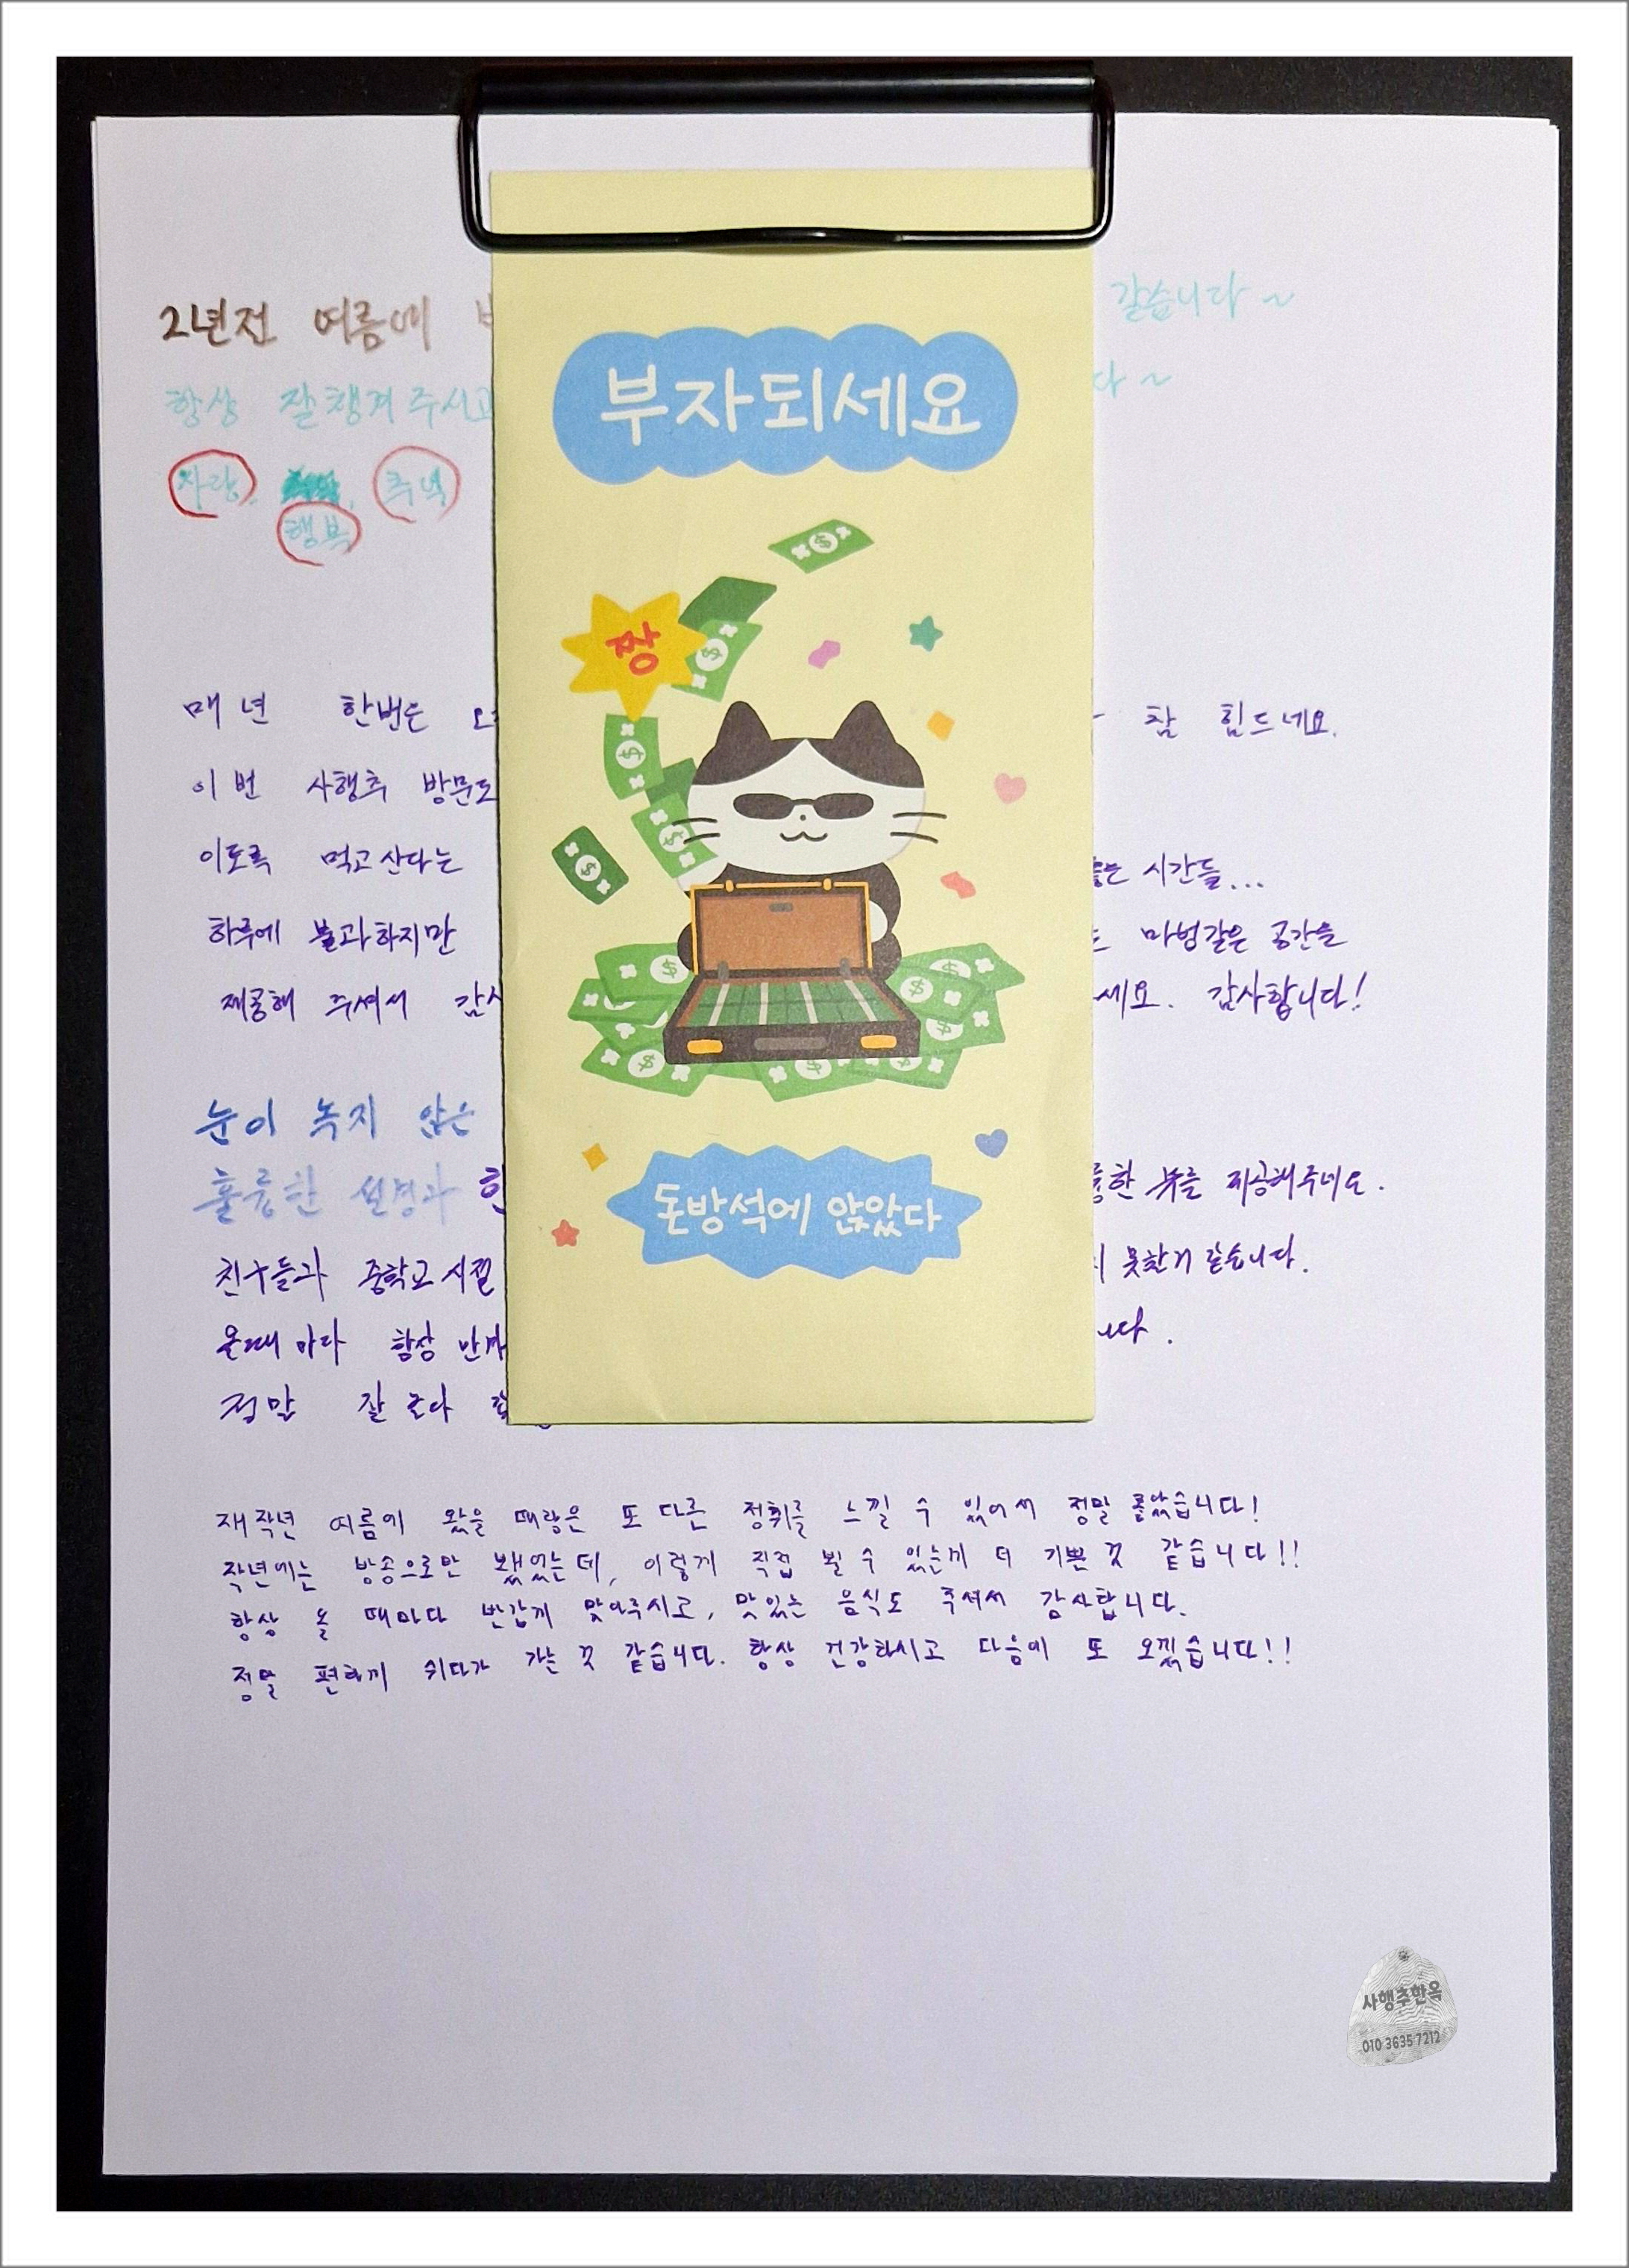 2년전 여름에
같습니다~
항상 잘챙겨주시고
다~
사랑, 추억
행복
부자되세요
짱
돈방석에 앉았다
매년 한번은
참 힘드네요.
이번 사행추 방문도
이토록 먹고산다는
시간들...
하루에 불과하지만
마법같은 공간을
제공해 주셔서 감사
세요. 감사합니다!
눈이 녹지 않은
훌륭한 설경과
한 뷰를 제공해주네요.
친구들과 중학교 시절
못한거 같습니다.
올때마다 항상 반겨
니다.
정말 잘 놀다
재작년 여름에 왔을 때랑은 또 다른 정취를 느낄 수 있어서 정말 좋았습니다!
작년에는 방송으로만 뵀었는데, 이렇게 직접 뵐 수 있는게 더 기쁜 것 같습니다!!
항상 올 때마다 반갑게 맞아주시고, 맛있는 음식도 주셔서 감사합니다.
정말 편하게 쉬다가 가는 것 같습니다. 항상 건강하시고 다음에 또 오겠습니다!!
사행추한옥
010 3635 7212